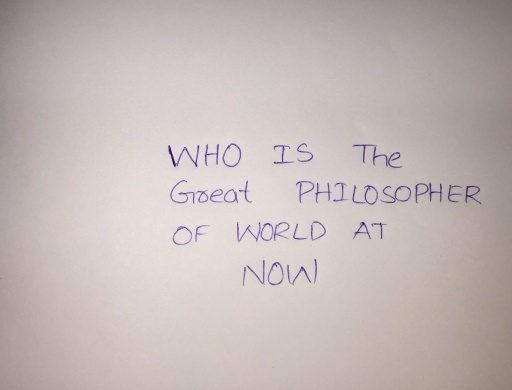 WHO IS The
Great PHILOSOPHER
OF WORLD AT
NOW